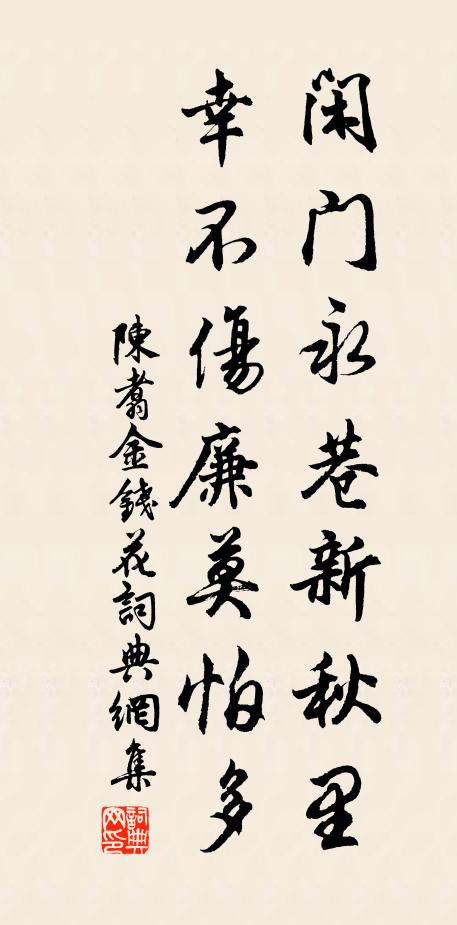 閑门永巷新秋里
幸不傷廉莫怕多
陳翥金錢花詞典網集
詞典
网印